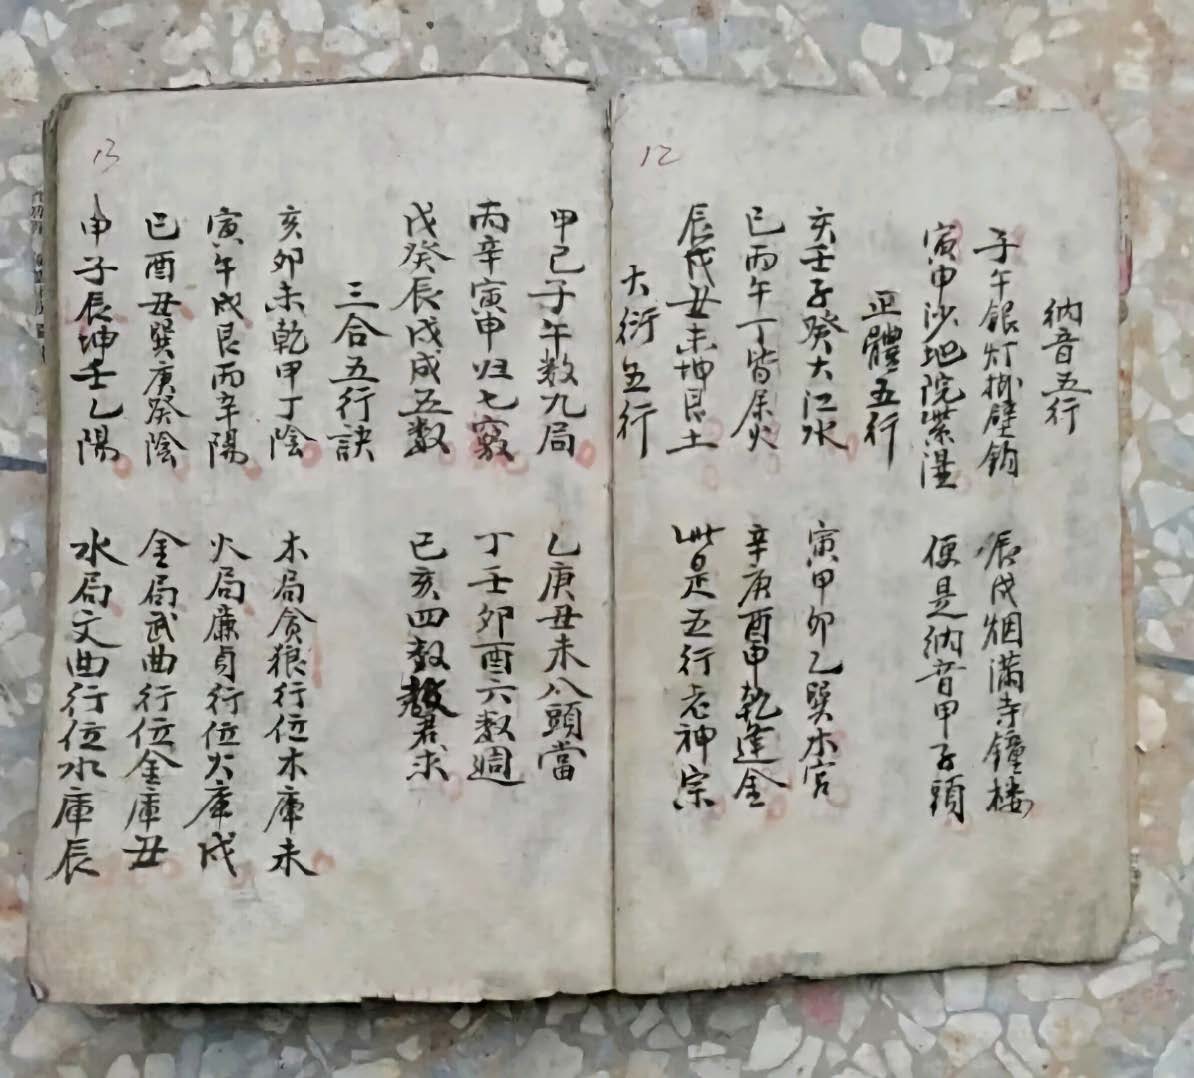 12
納音五行
子午銀灯掛壁鈎 辰戌烟滿寺鐘楼
寅申沙地院柴湿 便是納音甲子頭
正體五行
亥壬子癸大江水 寅甲卯乙巽木宮
巳丙午丁皆属火 辛庚酉申乾逢金
辰戌丑未坤艮土 此是五行老神宗
大衍五行
13
甲己子午数九局 乙庚丑未八頭當
丙辛寅申归七窮 丁壬卯酉六数週
戊癸辰戌成五数 巳亥四数君求
三合五行訣
亥卯未乾甲丁陰 木局貪狼行位木庫未
寅午戌艮丙辛陽 火局廉貞行位火庫戌
巳酉丑巽庚癸陰 金局武曲行位金庫丑
申子辰坤壬乙陽 水局文曲行位水庫辰